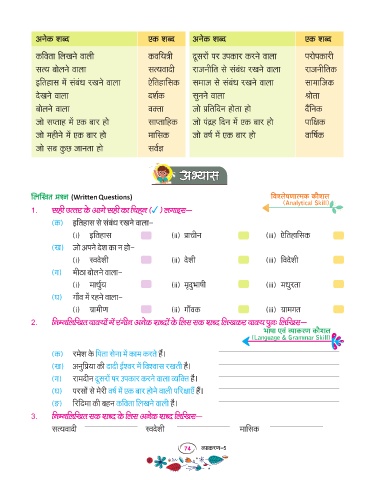 अनेक शब्द एक शब्द अनेक शब्द एक शब्द
कविता लिखने वाली कवयित्री दूसरों पर उपकार करने वाला परोपकारी
सत्य बोलने वाला सत्यवादी राजनीति से संबंध रखने वाला राजनीतिक
इतिहास में संबंध रखने वाला ऐतिहासिक समाज से संबंध रखने वाला सामाजिक
देखने वाला दर्शक सुनने वाला श्रोता
बोलने वाला वक्ता जो प्रतिदिन होता हो दैनिक
जो सप्ताह में एक बार हो साप्ताहिक जो पंद्रह दिन में एक बार हो पाक्षिक
जो महीने में एक बार हो मासिक जो वर्ष में एक बार हो वार्षिक
जो सब कुछ जानता हो सर्वज्ञ
अभ्यास
लिखित प्रश्न (Written Questions) विश्लेषणात्मक कौशल
(Analytical Skill)
1. सही उत्तर के आगे सही का चिह्न (✓) लगाइए—
(क) इतिहास से संबंध रखने वाला–
(i) इतिहास (ii) प्राचीन (iii) ऐतिहासिक
(ख) जो अपने देश का न हो–
(i) स्वदेशी (ii) देशी (iii) विदेशी
(ग) मीठा बोलने वाला–
(i) माधुर्य (ii) मृदुभाषी (iii) मधुरता
(घ) गाँव में रहने वाला–
(i) ग्रामीण (ii) गाँवक (iii) ग्रामगत
2. निम्नलिखित वाक्यों में रंगीन अनेक शब्दों के लिए एक शब्द लिखकर वाक्य पुनः लिखिए—
भाषा एवं व्याकरण कौशल
(Language & Grammar Skill)
(क) रमेश के पिता सेना में काम करते हैं।
(ख) अनुप्रिया की दादी ईश्वर में विश्वास रखती है।
(ग) रामदीन दूसरों पर उपकार करने वाला व्यक्ति है।
(घ) परसों से मेरी वर्ष में एक बार होने वाली परीक्षाएँ हैं।
(ङ) रिदिमा की बहन कविता लिखने वाली है।
3. निम्नलिखित एक शब्द के लिए अनेक शब्द लिखिए—
सत्यवादी स्वदेशी मासिक
74 व्याकरण-5